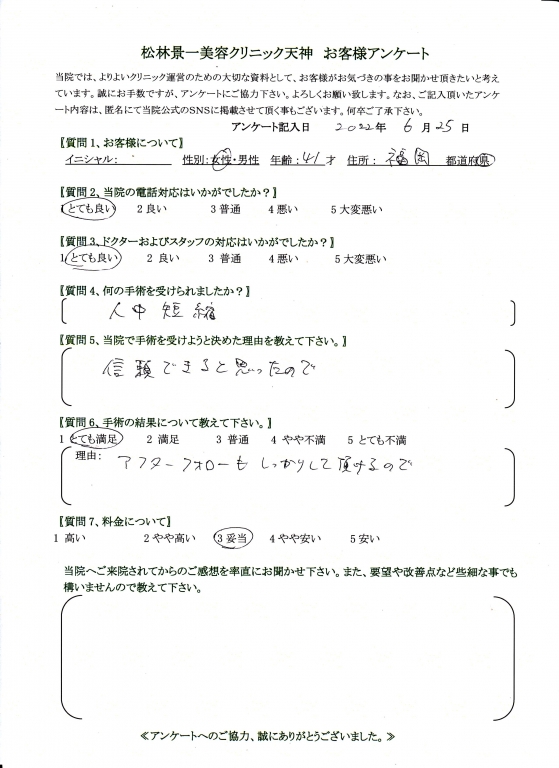 松林景一美容クリニック天神 お客様アンケート
当院では、よりよいクリニック運営のための大切な資料として、お客様がお気づきの事をお聞かせ頂きたいと考え
ています。誠にお手数ですが、アンケートにご協力下さい。よろしくお願い致します。なお、ご記入頂いたアンケ
ート内容は、匿名にて当院公式のSNSに掲載させて頂く事もございます。何卒ご了承下さい。
アンケート記入日 2022年 6月25日
【質問1、お客様について】
イニシャル: 性別:女性・男性 年齢:41才 住所: 福岡 都道府県
【質問2、当院の電話対応はいかがでしたか?】
1とても良い 2良い 3普通 4悪い 5大変悪い
【質問3、ドクターおよびスタッフの対応はいかがでしたか?】
1とても良い 2良い 3普通 4悪い 5大変悪い
【質問4、何の手術を受けられましたか?】
人中短縮
【質問5、当院で手術を受けようと決めた理由を教えて下さい。】
信頼できると思ったので
【質問6、手術の結果について教えて下さい。】
1とても満足 2満足 3普通 4やや不満 5とても不満
理由: アフターフォローもしっかりして頂けるので
【質問7、料金について】
1高い 2やや高い 3妥当 4やや安い 5安い
当院へご来院されてからのご感想を率直にお聞かせ下さい。また、要望や改善点など些細な事でも
構いませんので教えて下さい。
≪アンケートへのご協力、誠にありがとうございました。≫